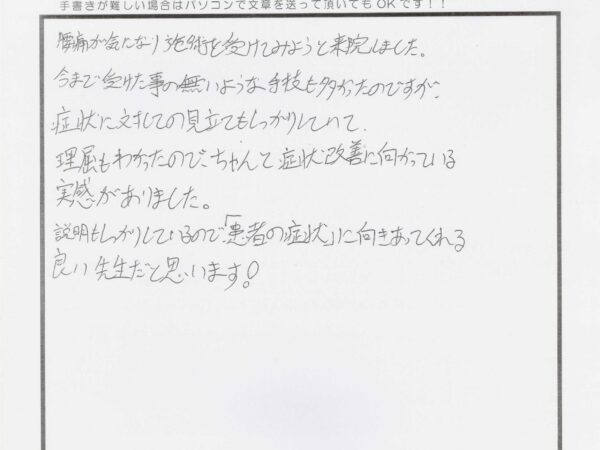 手書きが難しい場合はパソコンで文章を送って頂いてもOKです！！
腰痛が気になり施術を受けてみようと来院しました。
今まで受けた事の無いような手技も多かったのですが、
症状に対しての見立てもしっかりしていて、
理屈もわかったので、ちゃんと症状改善に向かっている
実感がありました。
説明もしっかりしているので「患者の症状」に向きあってくれる
良い先生だと思います！